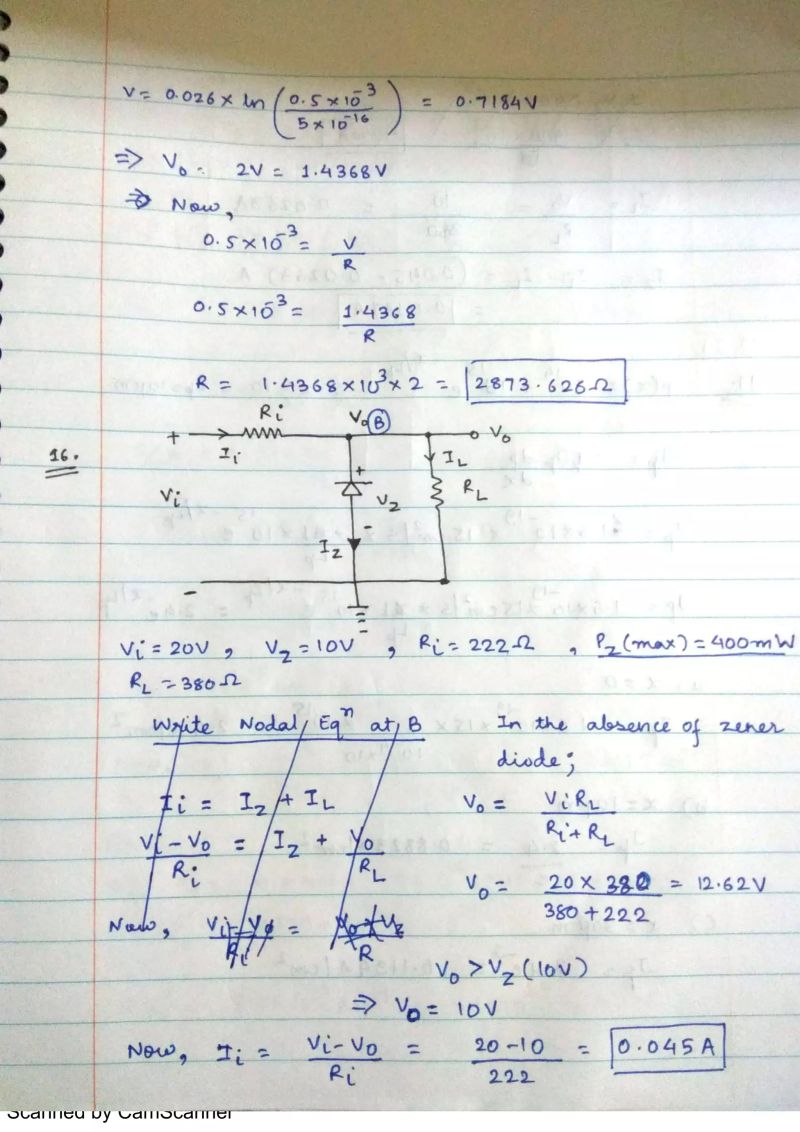 V = 0.026 × ln (0.5 × 10⁻³ / 5 × 10⁻¹⁶) = 0.7184V
⇒ V₀ = 2V = 1.4368V
⇒ Now,
0.5 × 10⁻³ = V/R
0.5 × 10⁻³ = 1.4368/R
R = 1.4368 × 10³ × 2 = 2873.626Ω
16.
Ri
V₀ B
V₀
+
Ii
IL
Vi
+
VZ
RL
-
IZ
-
Vi = 20V , VZ = 10V , Ri = 222Ω , PZ(max) = 400mW
RL = 380Ω
Write Nodal Eqⁿ at B
Ii = IZ + IL
(Vi - V₀)/Ri = IZ + V₀/RL
In the absence of zener
diode;
V₀ = ViRL/(Ri + RL)
V₀ = (20 × 380)/(380 + 222) = 12.62V
Now,
V₀ > VZ (10V)
⇒ V₀ = 10V
Now, Ii = (Vi - V₀)/Ri = (20 - 10)/222 = 0.045A
Scanned by CamScanner